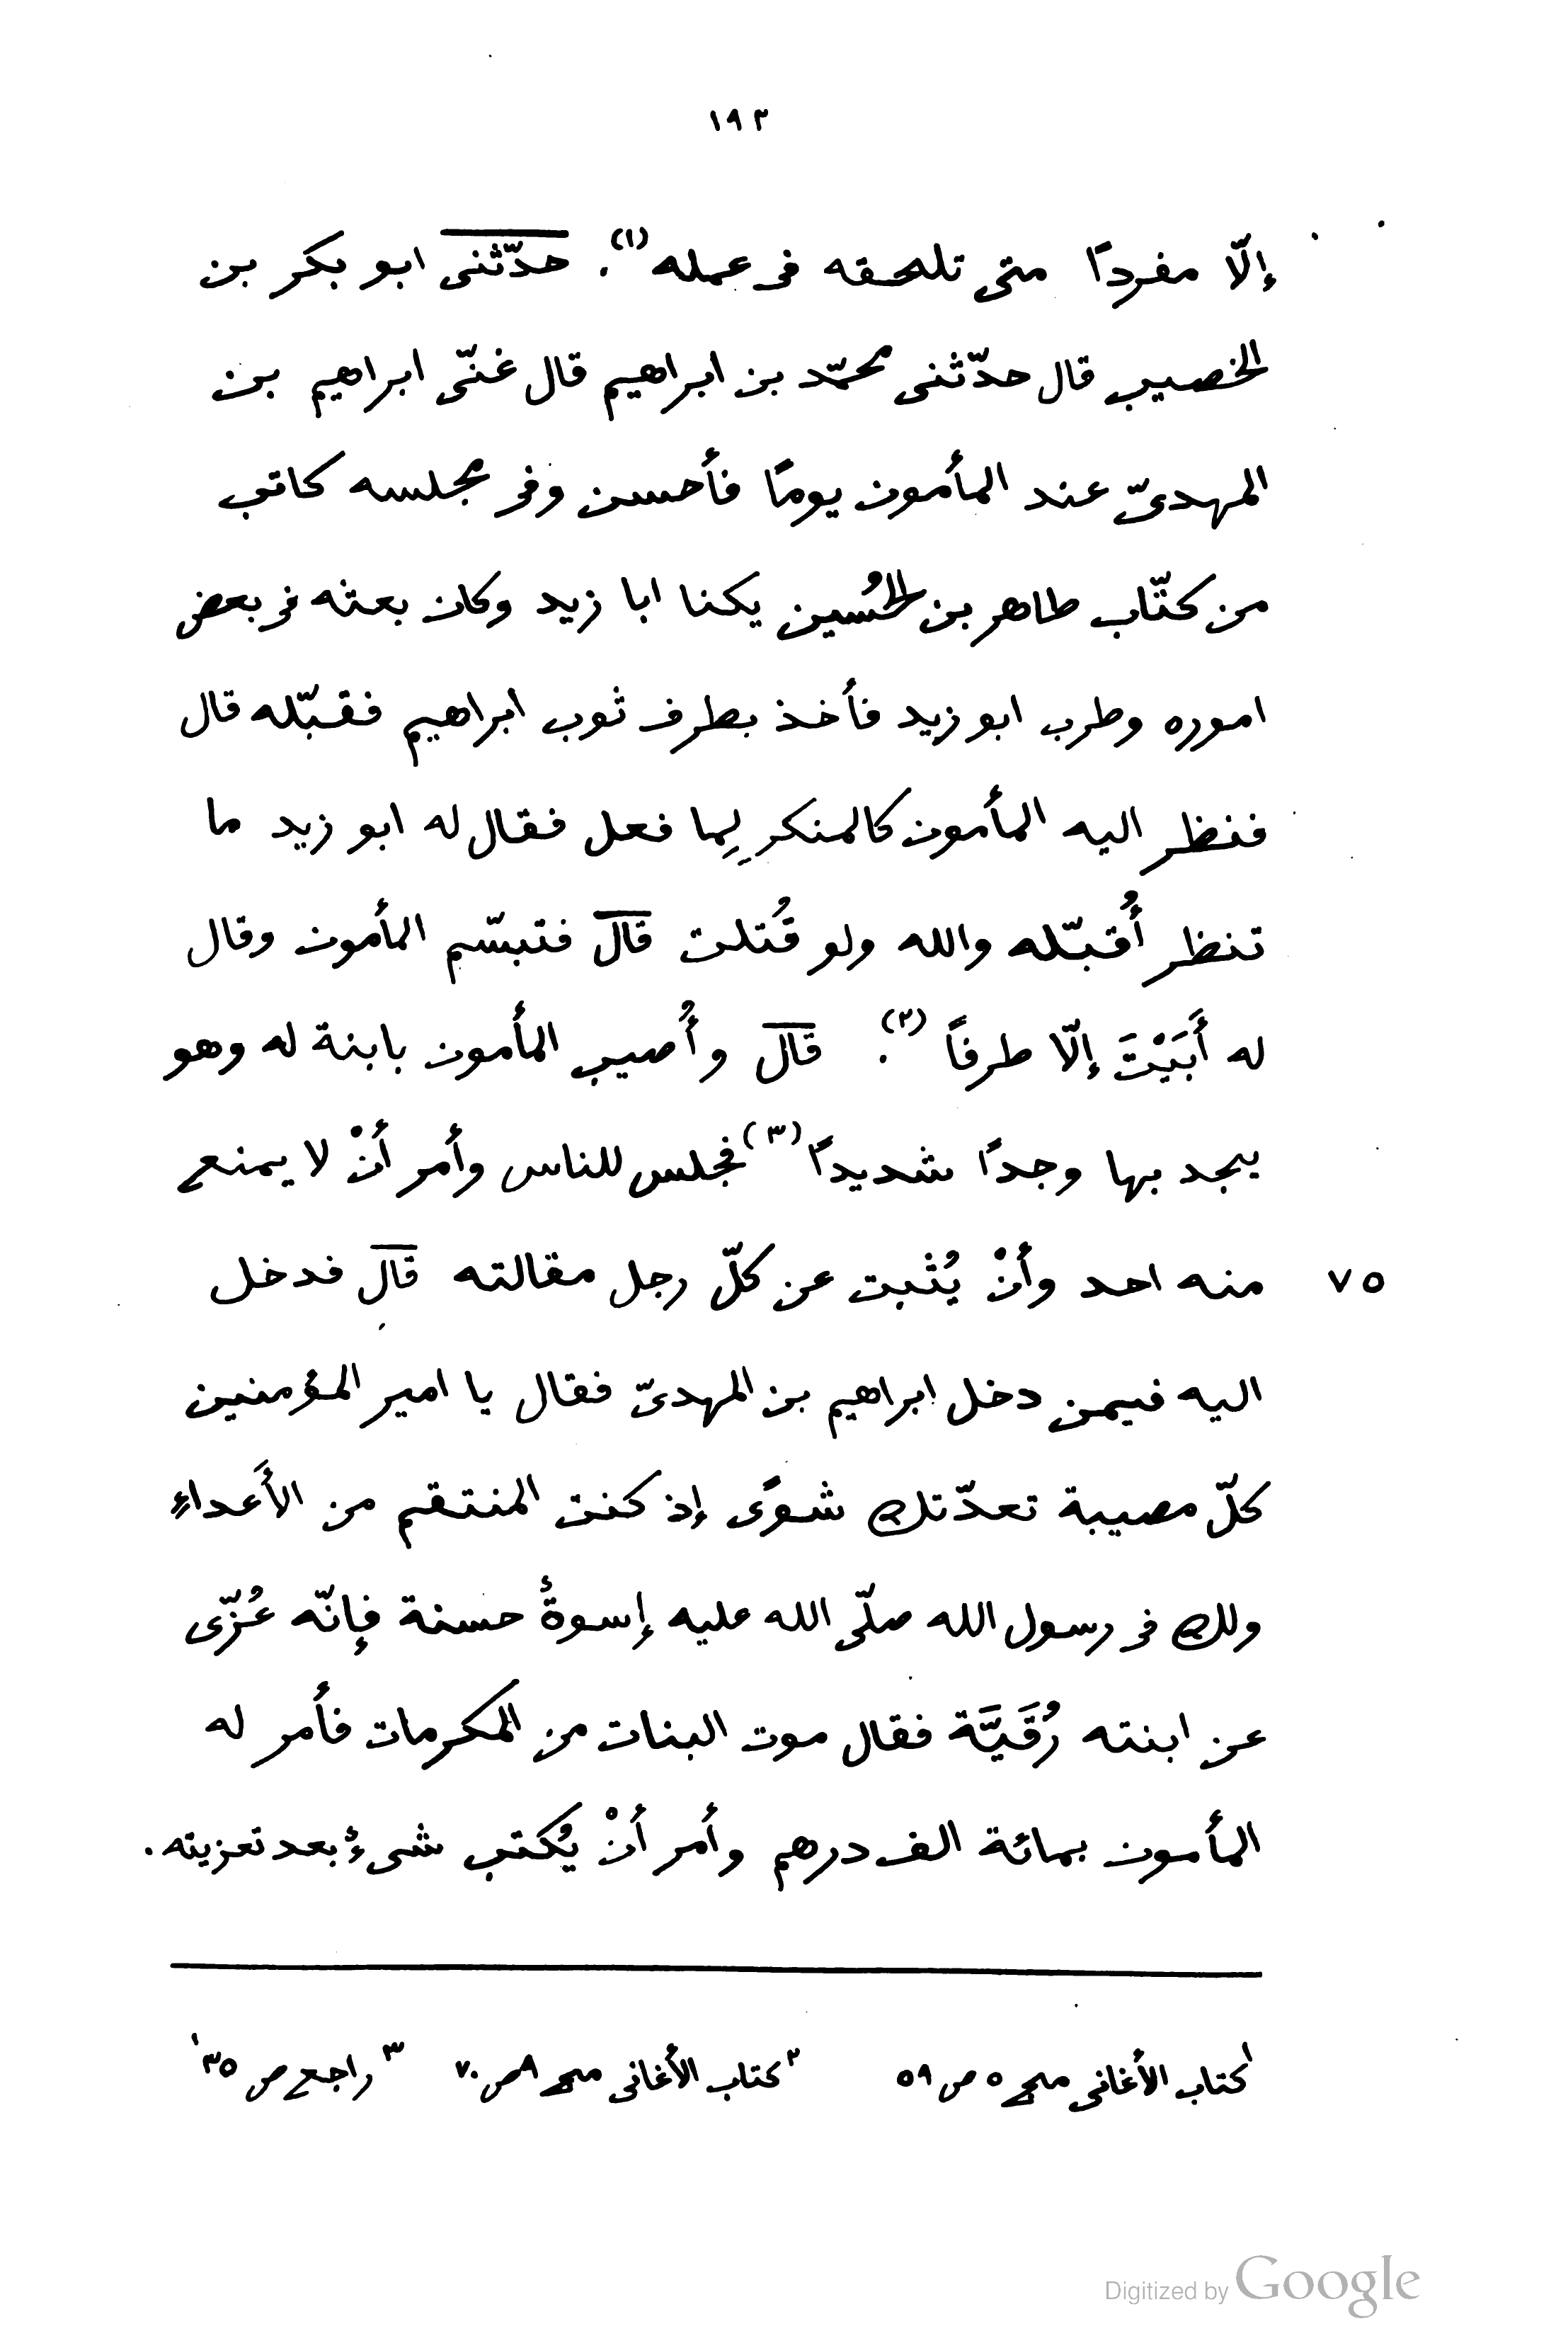 ١٩٣
إلّا مفردًا متى تلحقه فى عمله (١). حدّثنى ابو بكر بن
الخصيب قال حدّثنى محمّد بن ابراهيم قال غنّى ابراهيم بن
المهدىّ عند المأمون يومًا فأحسن وفى مجلسه كاتب
من كتّاب طاهر بن الحُسين يكنا ابا زيد وكان بعثه فى بعض
اموره وطرب ابو زيد فأخذ بطرف ثوب ابراهيم فقبّله قال
فنظر اليه المأمون كالمنكر لِما فعل فقال له ابو زيد ما
تنظر أُقبّله والله ولو قُتلت قال فتبسّم المأمون وقال
له أَبَيْتَ إلّا طرفاً (٢). قال وأُصيب المأمون بابنة له وهو
يجد بها وجدًا شديدًا (٣) فجلس للناس وأمر أنْ لا يمنع
٧٥ منه احد وأنْ يُثبت عن كلّ رجل مقالته قال فدخل
اليه فيمن دخل ابراهيم بن المهدىّ فقال يا امير المؤمنين
كلّ مصيبة تعدّتك شوًى إذ كنت المنتقم من الأَعداءِ
ولك فى رسول الله صلّى الله عليه إسوةٌ حسنة فإنّه عُزّى
عن ابنته رُقَيَّة فقال موت البنات من المكرمات فأمر له
المأمون بمائة الف درهم وأمر أنْ يُكتب شىءٌ بعد تعزيته.
١ كتاب الأغانى مج ٥ ص ٥٩ ٢ كتاب الأغانى مج ٩ ص ٧٠ ٣ راجع ص ٣٥
Digitized by Google